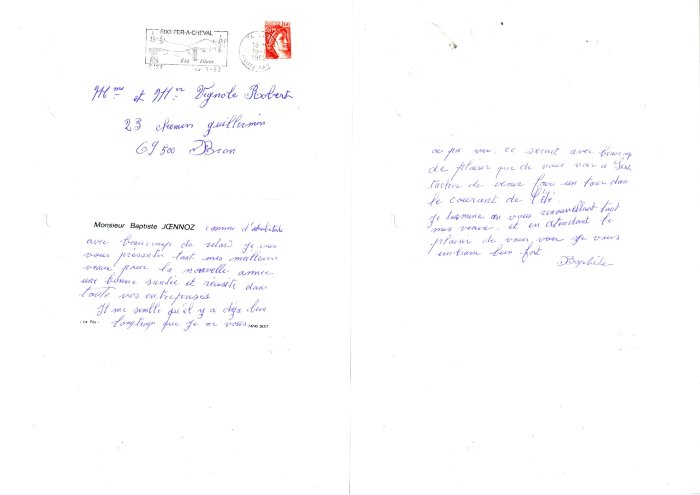 SIXT-FER-A-CHEVAL
Eté Hiver
Mme et Mer Vignole Robert
23 chemin guillermin
69500 Bron
Monsieur Baptiste JŒNNOZ comme d'habitude
avec beaucoup de retard je viens
vous présenter tout mes meilleurs
veaux pour la nouvelle année
une bonne santée et réusite dans
toute vos entreprises
Il me semble qu'il y a déja bien
- Le Fay - longtemps que je ne vous 74740 SIXT
ai pu voir. ce serait avec beaucoup
de plaisir que de vous voir a Sixt
tachez de venir faire un tour dans
le courant de l'été.
je termine en vous renouvellent tout
mes veaux. et en attendant le
plaisir de vous voir je vous
embrasse bien fort
Baptiste